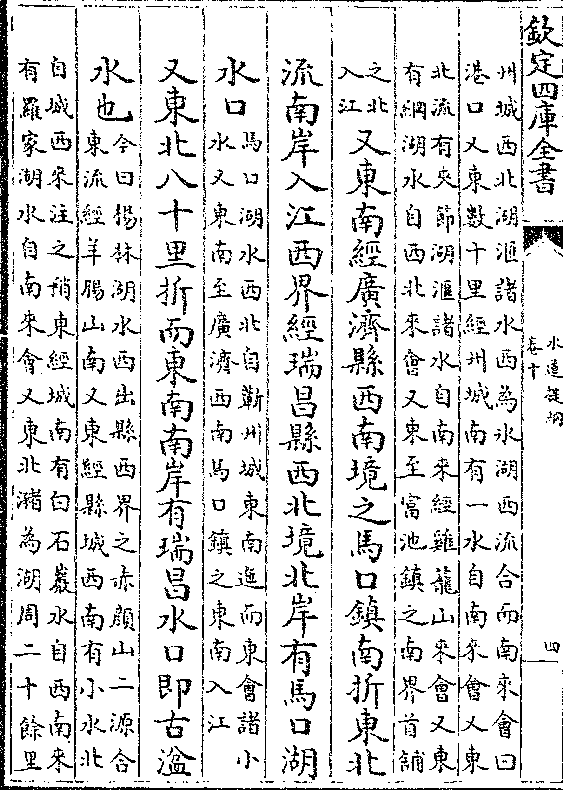 欽定四庫全書
水道提綱
卷十
四
州城西北湖滙諸水西為水湖西流合而南來會曰
港口又東數十里經州城南有一水自南來會又東
北流有夾節湖滙諸水自南來經雞龍山來會又東
有綱湖水自西北來會又東至富池鎮之南界首舖
之北
入江
又東南經廣濟縣西南境之馬口鎮南折東北
流南岸入江西界經瑞昌縣西北境北岸有馬口湖
水口
馬口湖水西北自蘄州城東南迤而東會諸小
水又東南至廣濟西南馬口鎮之東南入江
又東北八十里折而東南南岸有瑞昌水口即古湓
水也
今曰楊林湖水西出縣西界之赤顏山二源合
東流經羊腸山南又東經縣城西南有小水北
自城西來注之稍東經城南有白石巖水自西南來
有羅家湖水自南來會又東北瀦為湖周二十餘里